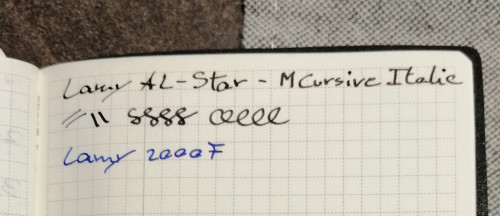 Lamy AL-Star - M Cursive Italic
// || 8888 eeeee
Lamy 2000F